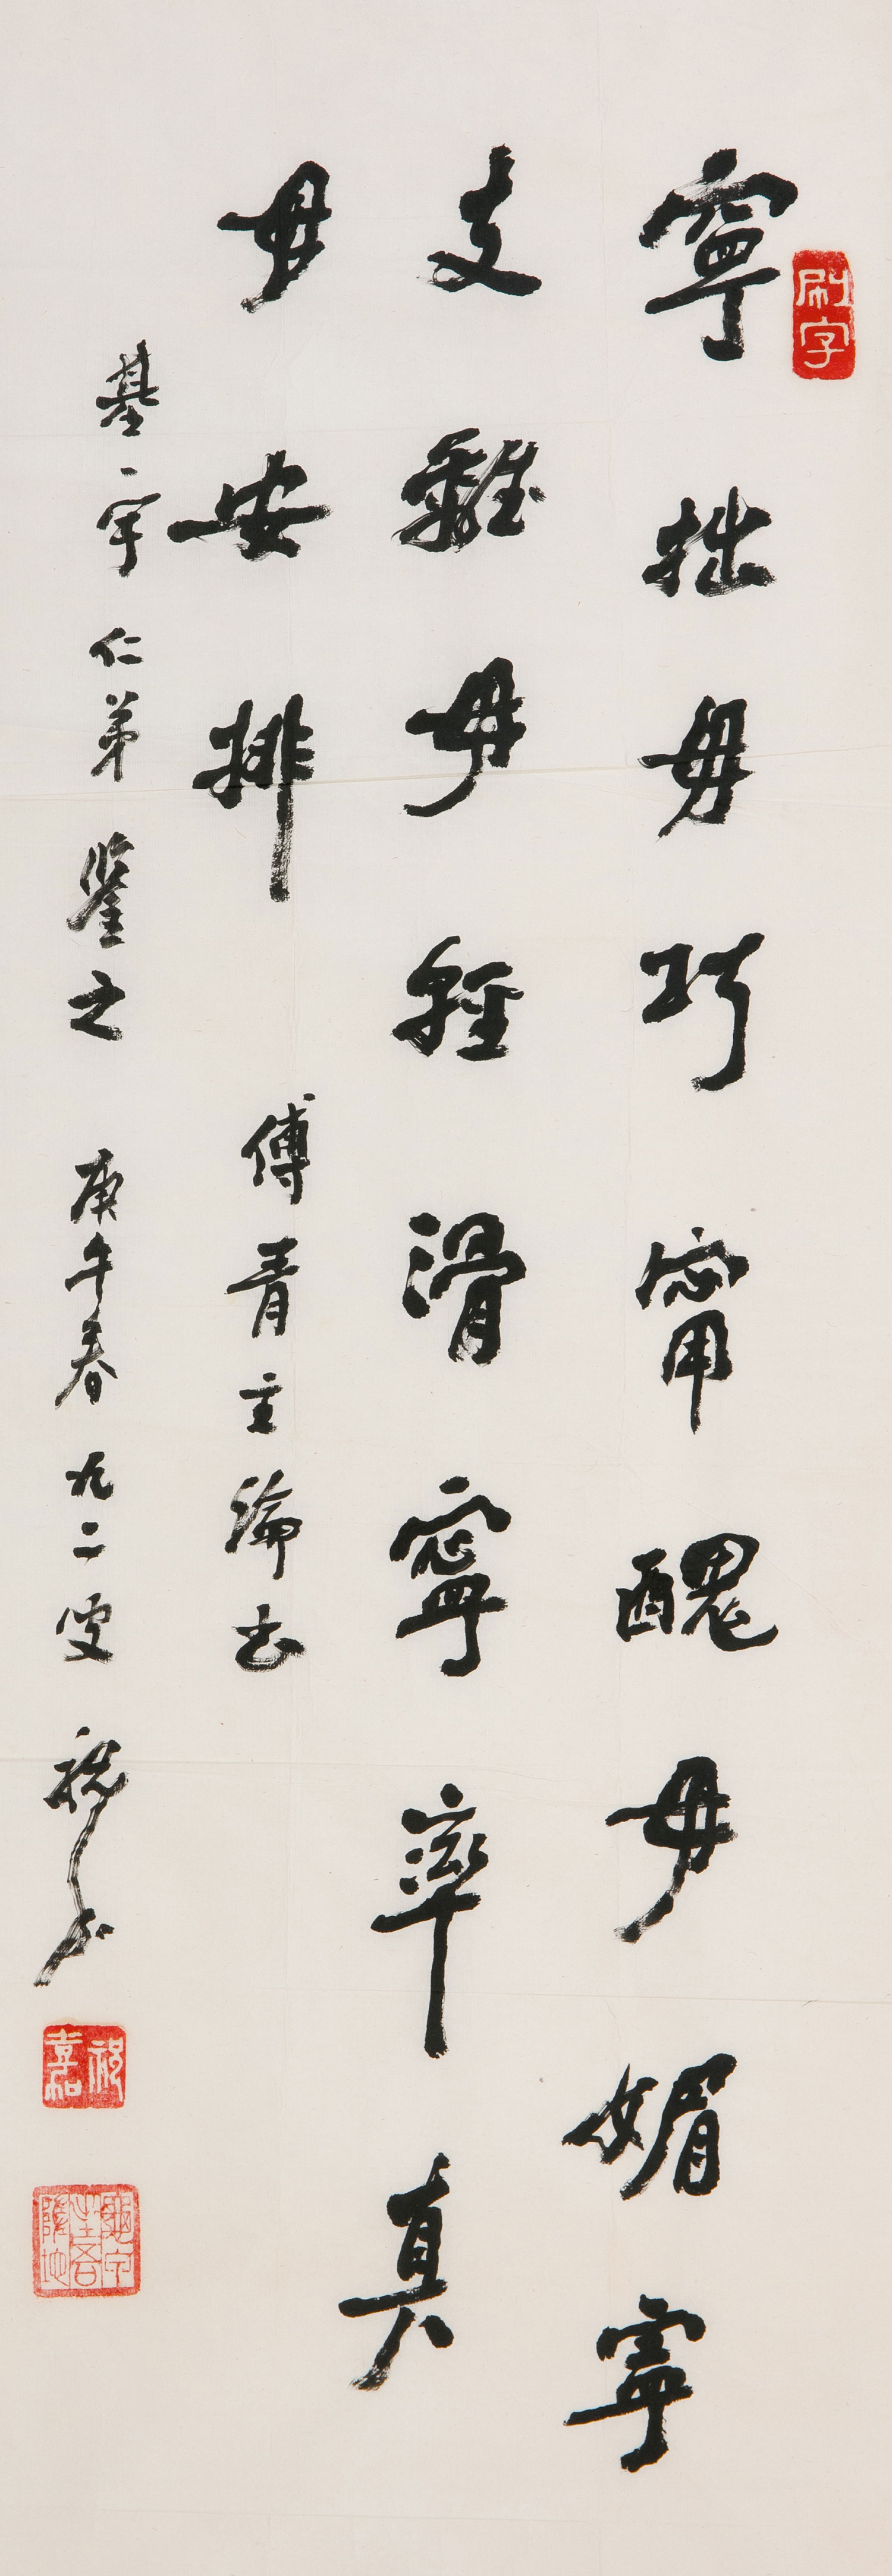 寧拙毋巧甯醜毋媚寧
支離毋輕滑寧率真
毋安排
傅青主論書
基宇仁弟鑒之 庚午春 九二叟 祝嘉
刷字
祝嘉